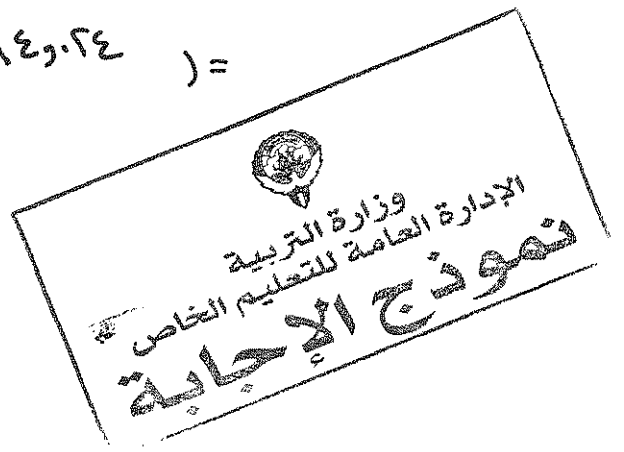 ٤٫٠٢٤ )=
وزارة التربية
الإدارة العامة للتعليم الخاص
نموذج الإجابة